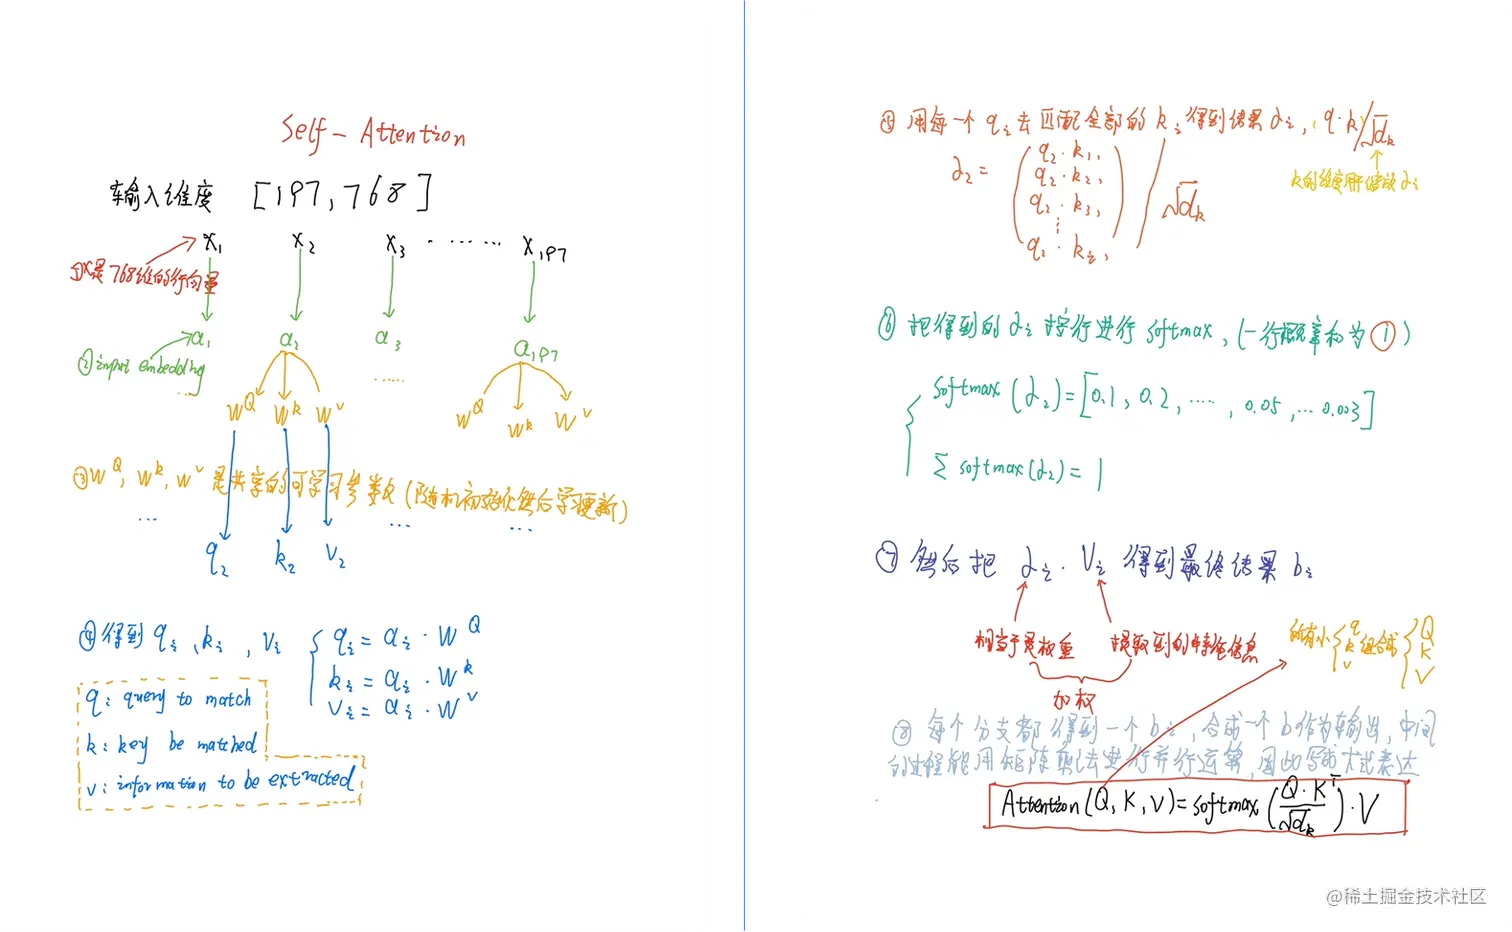 Self-Attention
输入维度 [197,768]
x₁ x₂ x₃ ······ x₁₉₇
①x是768维的行向量
a₁ a₂ a₃ a₁₉₇
②input embedding
... ......
W^Q W^k W^v W^Q W^k W^v
③W^Q, W^k, W^v 是共享的可学习参数(随机初始化然后学习更新)
... ... ...
q₂ k₂ v₂
④得到 qᵢ、kᵢ, vᵢ
qᵢ = aᵢ · W^Q
kᵢ = aᵢ · W^k
vᵢ = aᵢ · W^v
q: query to match
k: key be matched
v: information to be extracted
⑤用每一个qᵢ去匹配全部的kᵢ得到结果αᵢ, q·k/√dₖ
k的维度用来缩放αᵢ
α₂ = (q₂·k₁, q₂·k₂, q₂·k₃, ⋮ q₂·kᵢ,) / √dₖ
⑥把得到的αᵢ按行进行softmax, (一行概率和为①)
softmax(α₂)=[0.1, 0.2, ·····, 0.05, ...0.003]
∑ softmax(α₂) = 1
⑦然后把 αᵢ · vᵢ 得到最终结果 bᵢ
相当于是权重 提取到的特征信息
加权
所有小 { q k v 组合成 { Q K V
⑧每个分支都得到一个bᵢ, 合成一个b作为输出, 中间
的过程能用矩阵乘法去进行并行运算, 因此写成下式表达
Attention(Q, K, V)=softmax(Q·Kᵀ/√dₖ)·V
@稀土掘金技术社区